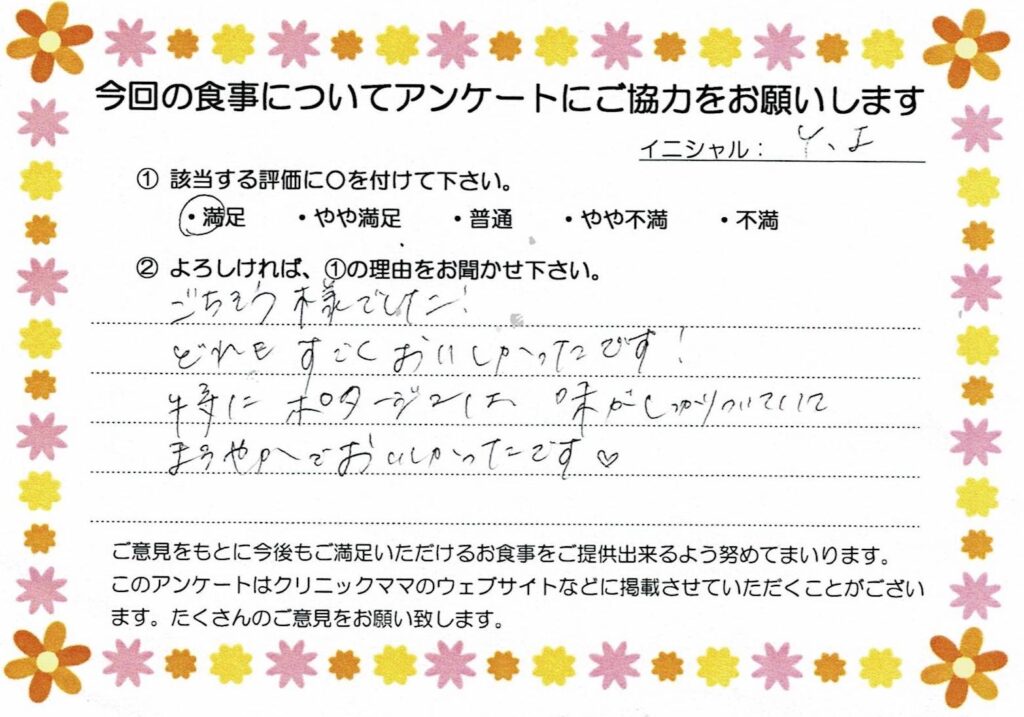 今回の食事についてアンケートにご協力をお願いします
イニシャル： Y、I
① 該当する評価に〇を付けて下さい。
・満足 ・やや満足 ・普通 ・やや不満 ・不満
② よろしければ、①の理由をお聞かせ下さい。
ごちそう様でした！
どれもすごくおいしかったです！
特にポタージュは味がしっかりついていて
まろやかでおいしかったです♡
ご意見をもとに今後もご満足いただけるお食事をご提供出来るよう努めてまいります。
このアンケートはクリニックママのウェブサイトなどに掲載させていただくことがござい
ます。たくさんのご意見をお願い致します。